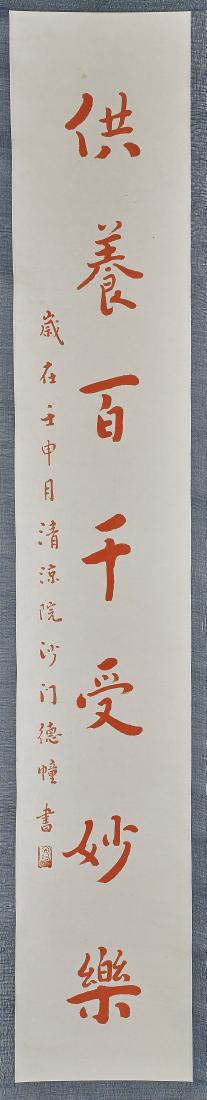 供養百千受妙樂
歲在壬申月清涼院沙门德幢書